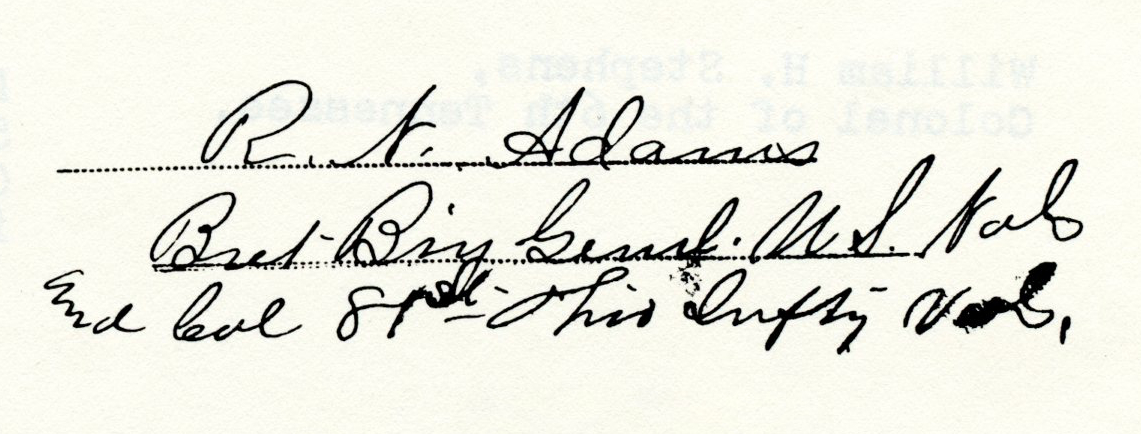 R. N. Adams
Bvet Brig Genl. U.S. Vols
and Col 81st Ohio Infty Vols,
William H. Stephens,
Colonel of the 6th Tennessee.